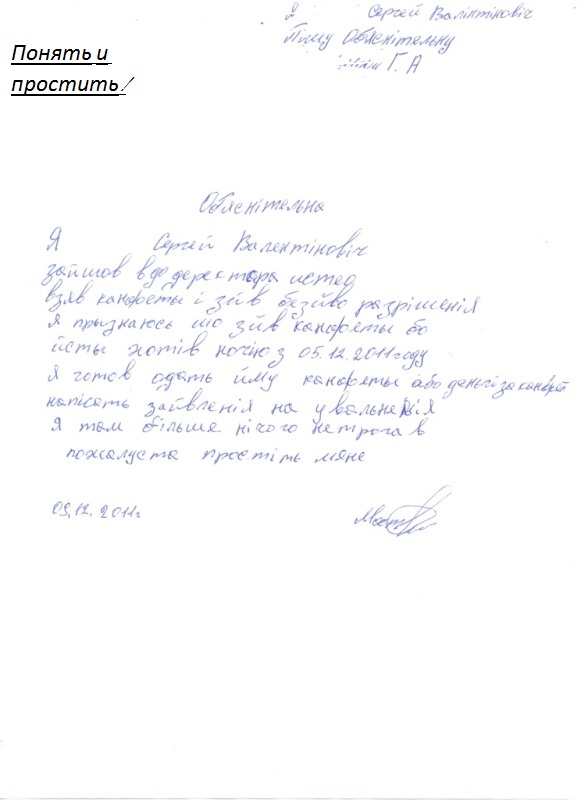 Я Сергей Валінтіновіч
Пішу Обяснітельну
Г. А
Понять и
простить!
Обяснітельна
Я Сергей Валентіновіч
зайшов в до деректора
взяв канфеты і зїв безйво разрішенія
я признаюсь шо зїв канфеты бо
йсты хотів ночію з 05.12.2011году
я готов одать йму канфеты або деньгі за канфети
напісать заївленія на увальненія
Я там більше нічого нетрогав
пожалуста простіть мяне
05.12.2011г